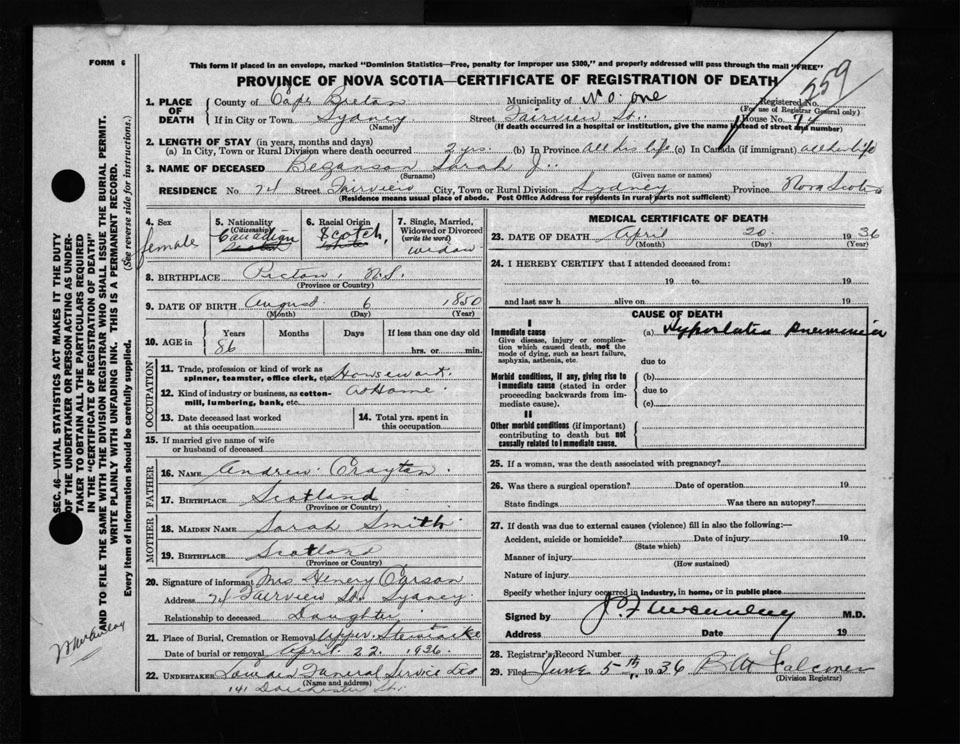 FORM 6
This form if placed in an envelope, marked "Dominion Statistics—Free, penalty for improper use $300," and properly addressed will pass through the mail "FREE"
PROVINCE OF NOVA SCOTIA—CERTIFICATE OF REGISTRATION OF DEATH
259
1. PLACE OF DEATH { County of Cape Breton Municipality of No. one Registered No.
(For use of Registrar General only)
If in City or Town Sydney Street Fairview St. House No. 74
(Name) (If death occurred in a hospital or institution, give the name instead of street and number)
2. LENGTH OF STAY (in years, months and days)
(a) In City, Town or Rural Division where death occurred 2 yrs. (b) In Province all his life (c) In Canada (if immigrant) all her life
3. NAME OF DECEASED Bezanson Sarah J.
(Surname) (Given name or names)
RESIDENCE No. 74 Street Fairview City, Town or Rural Division Sydney Province Nova Scotia
(Residence means usual place of abode. Post Office Address for residents in rural parts not sufficient)
4. Sex female
5. Nationality (Citizenship) Canadian
6. Racial Origin Scotch
7. Single, Married, Widowed or Divorced (write the word) widow
8. BIRTHPLACE Pictou, N.S.
(Province or Country)
9. DATE OF BIRTH August 6 1850
(Month) (Day) (Year)
10. AGE in { Years Months Days If less than one day old
86 hrs. or min.
OCCUPATION
11. Trade, profession or kind of work as spinner, teamster, office clerk, etc. Housework
12. Kind of industry or business, as cotton-mill, lumbering, bank, etc. at Home
13. Date deceased last worked at this occupation
14. Total yrs. spent in this occupation
15. If married give name of wife or husband of deceased
FATHER
16. NAME Andrew Crayton
17. BIRTHPLACE Scotland
(Province or Country)
MOTHER
18. MAIDEN NAME Sarah Smith
19. BIRTHPLACE Scotland
(Province or Country)
20. Signature of informant Mrs Henery Carson
Address 74 Fairview St. Sydney
Relationship to deceased Daughter
21. Place of Burial, Cremation or Removal Upper Stewiacke
Date of burial or removal April 22 1936
22. UNDERTAKER Funeral Service Ltd
(Name and Address)
141 Dorchester St.
MEDICAL CERTIFICATE OF DEATH
23. DATE OF DEATH April 20 1936
(Month) (Day) (Year)
24. I HEREBY CERTIFY that I attended deceased from:
19 to 19
and last saw h alive on 19
CAUSE OF DEATH
I
Immediate cause
Give disease, injury or complication which caused death, not the mode of dying, such as heart failure, asphyxia, asthenia, etc.
(a) Hypostatic pneumonia
due to
Morbid conditions, if any, giving rise to immediate cause (stated in order proceeding backwards from immediate cause).
(b)
due to
(c)
II
Other morbid conditions (if important) contributing to death but not causally related to immediate cause.
25. If a woman, was the death associated with pregnancy?
26. Was there a surgical operation? Date of operation 19
State findings Was there an autopsy?
27. If death was due to external causes (violence) fill in also the following:—
Accident, suicide or homicide? Date of injury 19
(State which)
Manner of injury
(How sustained)
Nature of injury
Specify whether injury occurred in industry, in home, or in public place
Signed by M.D.
Address Date 19
28. Registrar's Record Number
29. Filed June 5th 1936 Falconer
(Division Registrar)
SEC. 46—VITAL STATISTICS ACT MAKES IT THE DUTY
OF THE UNDERTAKER OR PERSON ACTING AS UNDER-
TAKER TO OBTAIN ALL THE PARTICULARS REQUIRED
IN THE "CERTIFICATE OF REGISTRATION OF DEATH"
AND TO FILE THE SAME WITH THE DIVISION REGISTRAR WHO SHALL ISSUE THE BURIAL PERMIT.
WRITE PLAINLY WITH UNFADING INK. THIS IS A PERMANENT RECORD.
Every item of information should be carefully supplied. (See reverse side for instructions.)